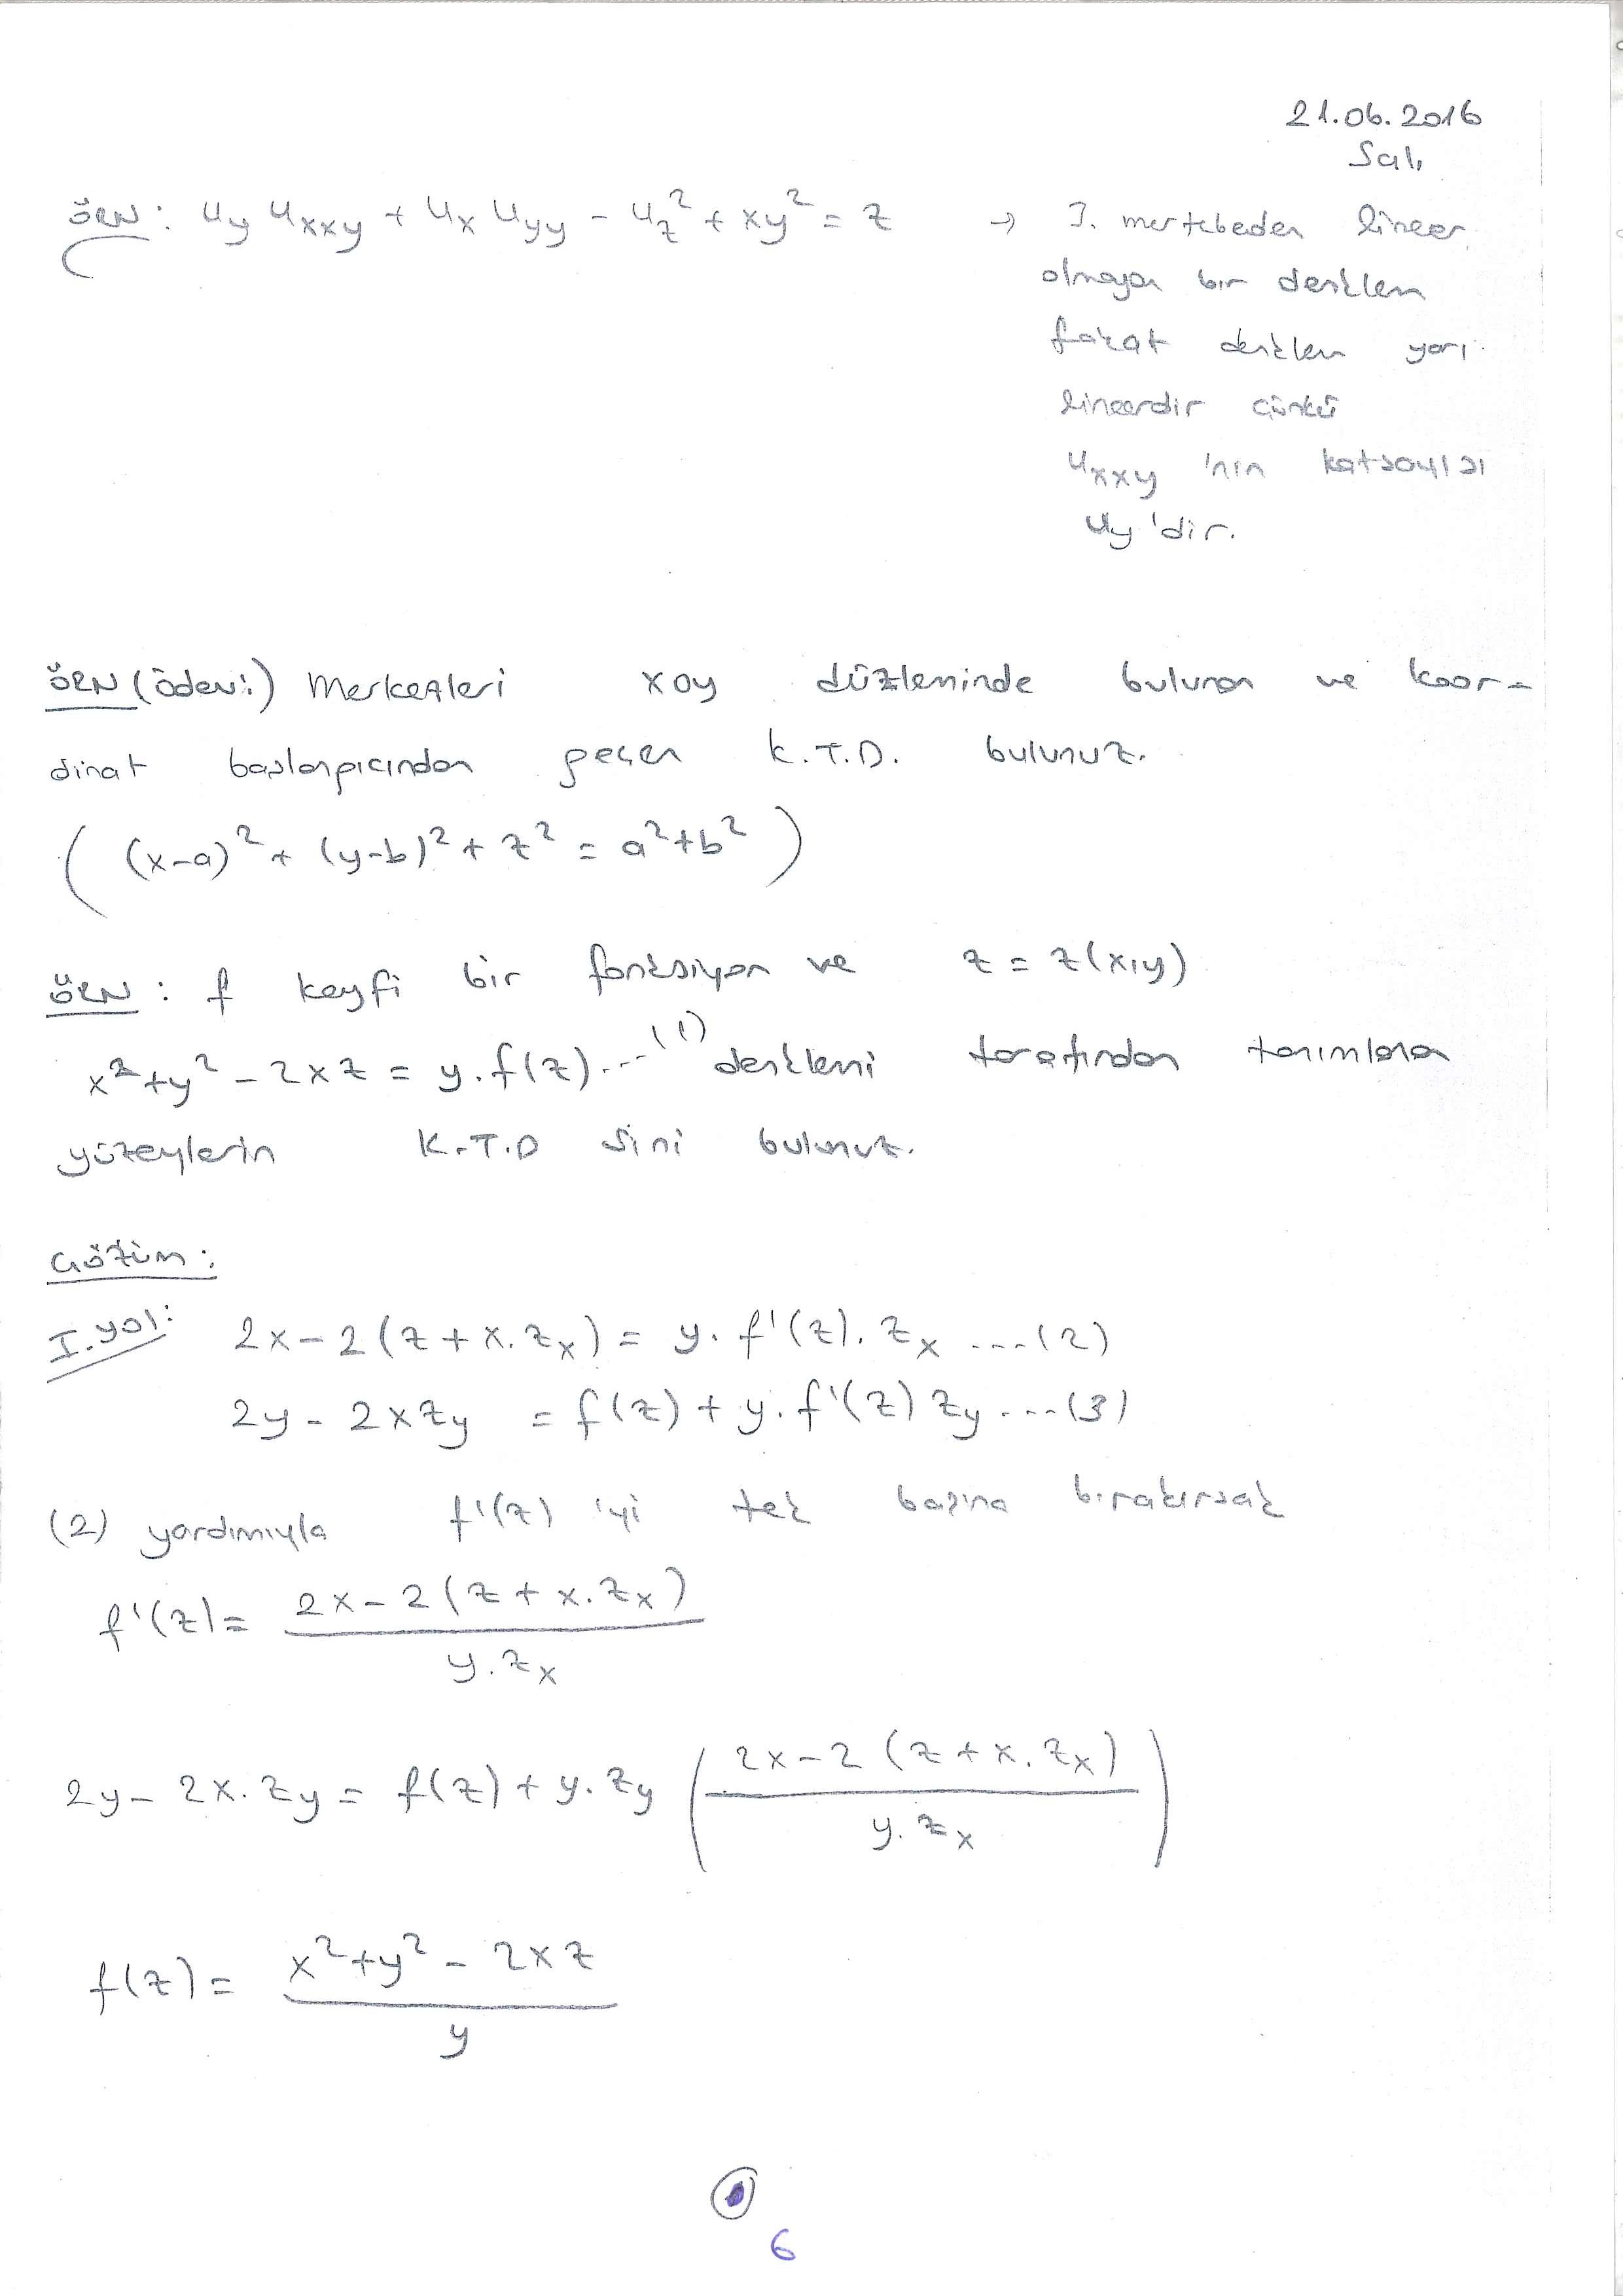 21.06.2016
Salı
ÖRN: u_y u_xxy + u_x u_yy - u_z² + xy² = z → 3. mertebeden lineer
olmayan bir denklem
fakat denklem yarı
lineerdir çünkü
u_xxy 'nin katsayısı
u_y 'dir.
ÖRN (ödev:) Merkezleri xoy düzleminde bulunan ve koor-
dinat başlangıcından geçen K.T.D. bulunuz.
( (x-a)² + (y-b)² + z² = a²+b² )
ÖRN : f keyfi bir fonksiyon ve z = z(x,y)
x²+y² - 2xz = y.f(z)...(1) denklemi tarafından tanımlanan
yüzeylerin K.T.D sini bulunuz.
Çözüm:
I.yol: 2x - 2(z + x.z_x) = y. f'(z). z_x ...(2)
2y - 2xz_y = f(z) + y. f'(z) z_y ...(3)
(2) yardımıyla f'(z) 'yi tek başına bırakırsak
f'(z) = (2x - 2(z + x.z_x)) / (y.z_x)
2y - 2x.z_y = f(z) + y.z_y ( (2x - 2(z + x.z_x)) / (y.z_x) )
f(z) = (x²+y² - 2xz) / y
6